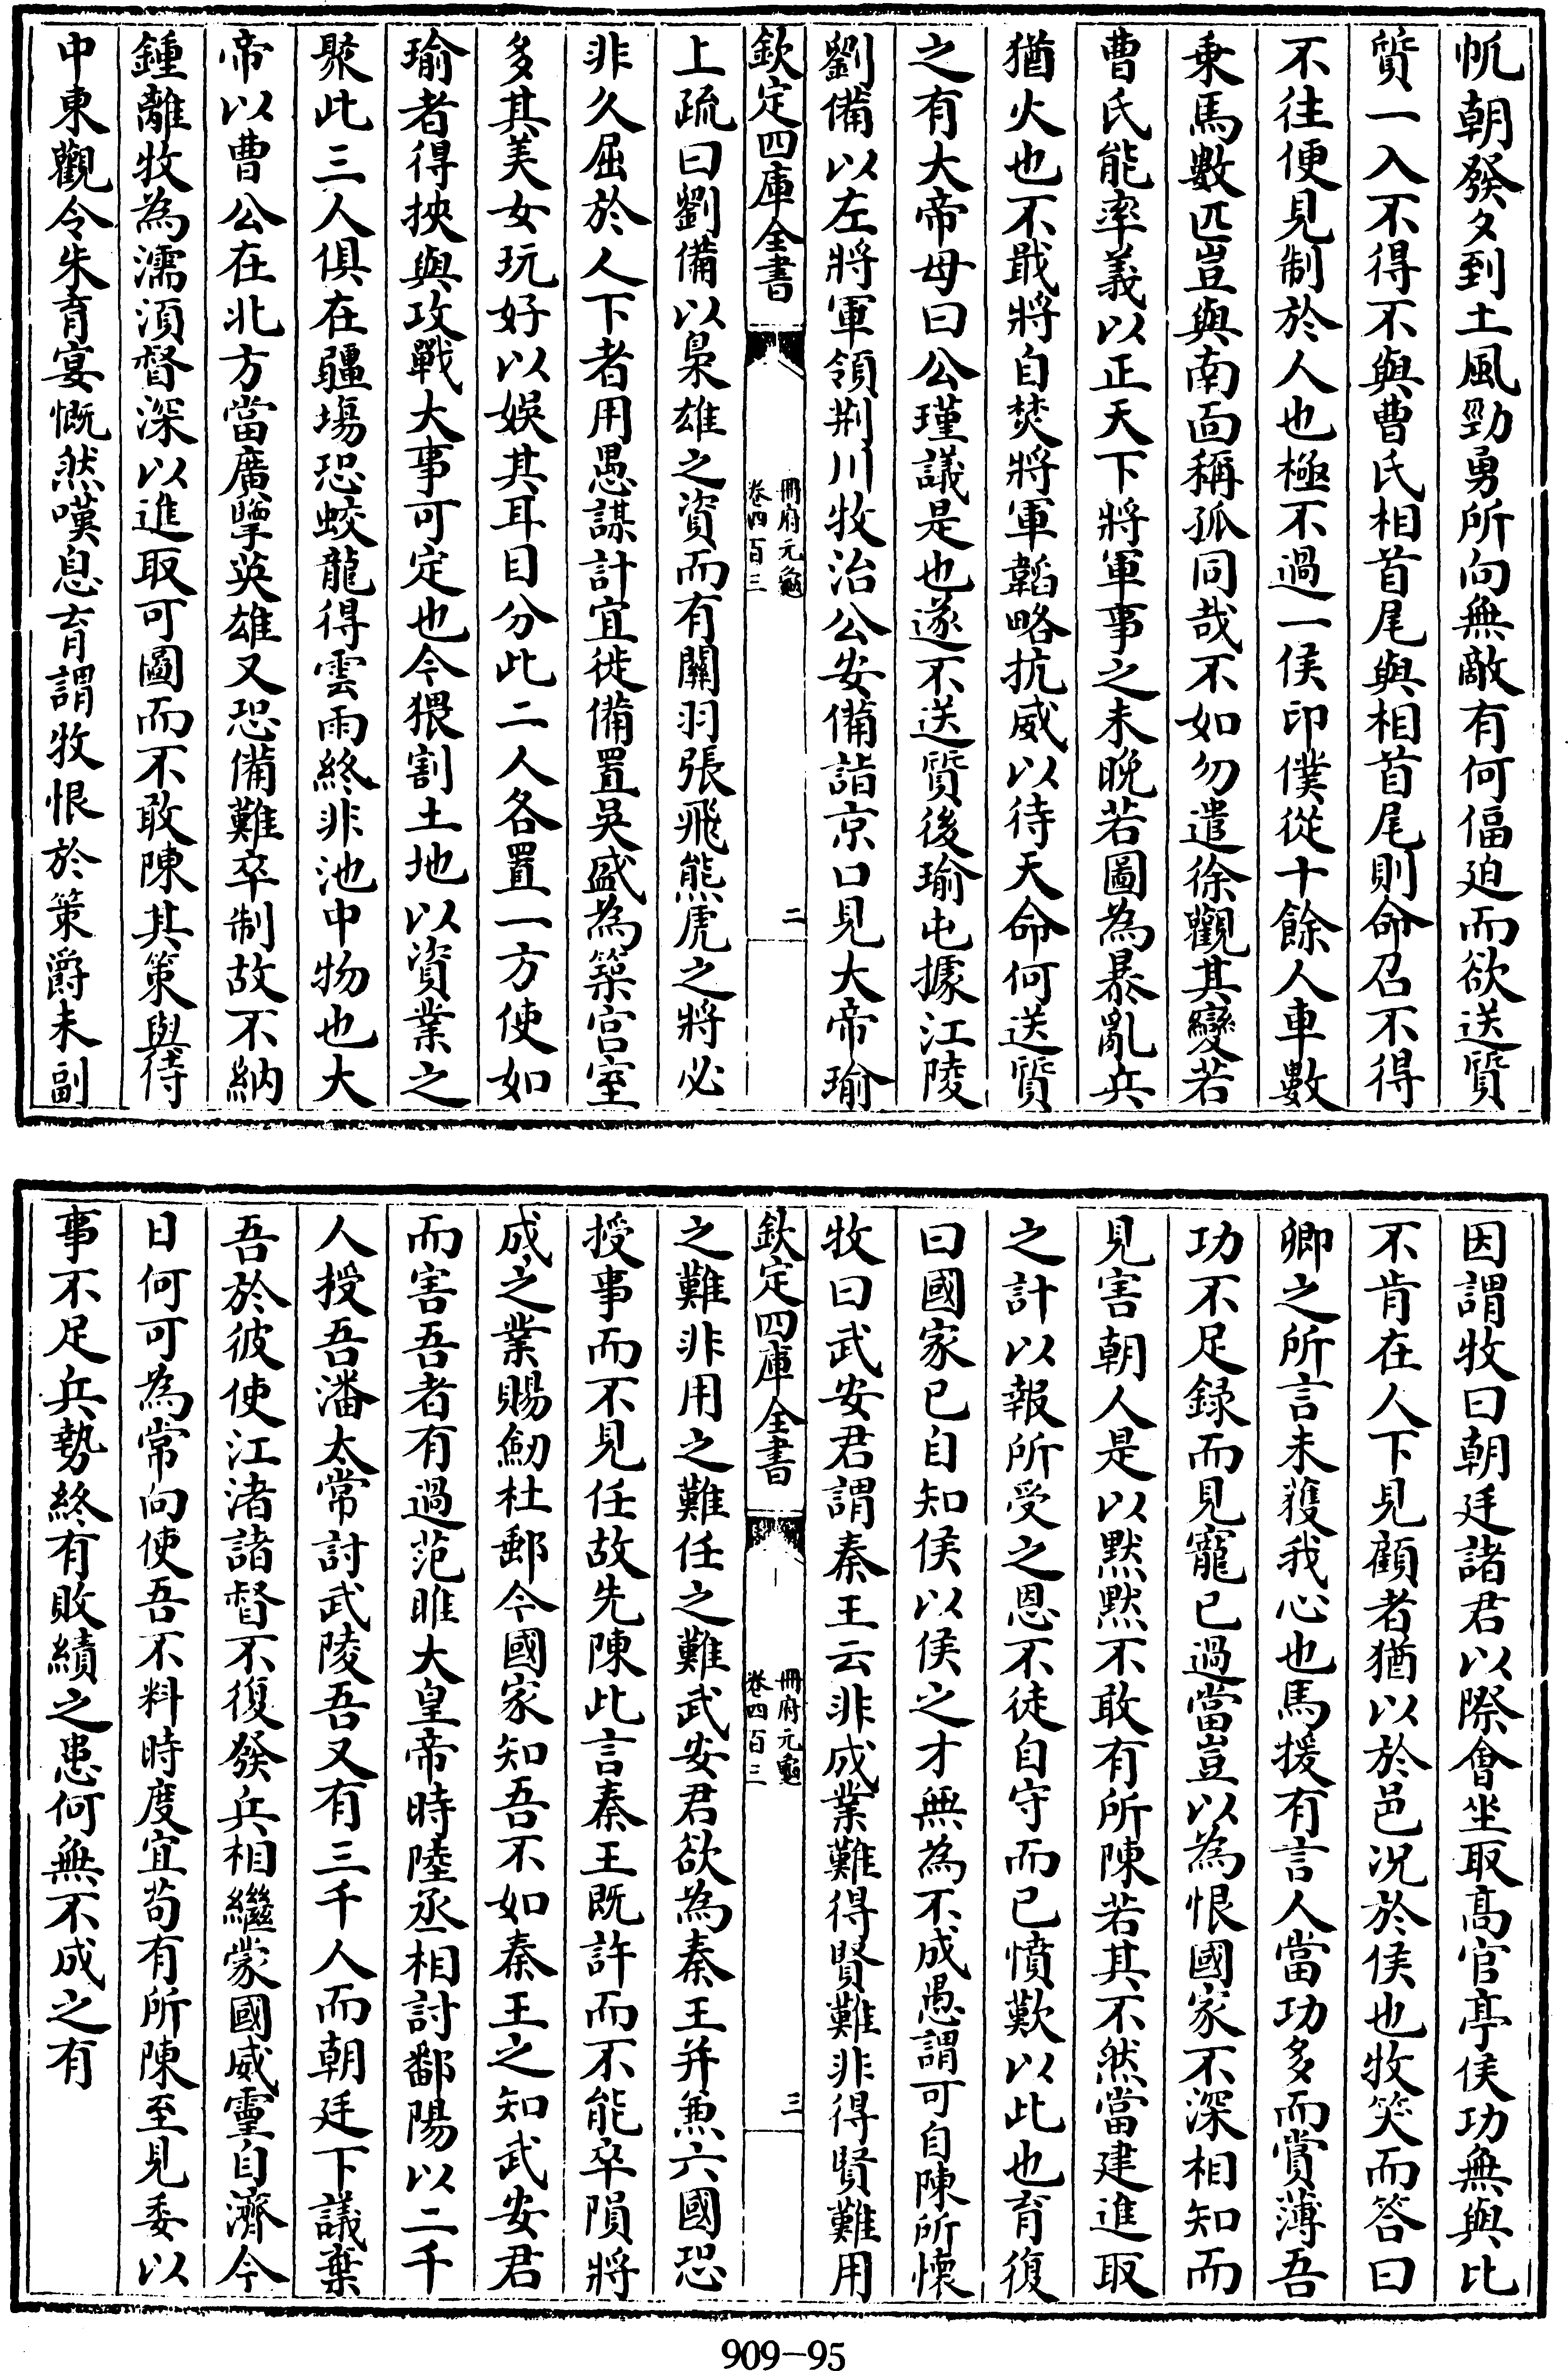 帆朝發夕到土風勁勇所向無敵有何偪迫而欲送質
質一入不得不與曹氏相首尾與相首尾則命召不得
不往便見制於人也極不過一侯印僕從十餘人車數
乗馬數匹豈與南面稱孤同哉不如勿遣徐觀其變若
曹氏能率義以正天下將軍事之未晩若圖為暴亂兵
猶火也不戢將自焚將軍韜略抗威以待天命何送質
之有大帝母曰公瑾議是也遂不送質後瑜屯據江陵
劉備以左將軍領荆川牧治公安備詣京口見大帝瑜
欽定四庫全書
冊府元龜
卷四百三
二
上疏曰劉備以梟雄之資而有關羽張飛熊虎之將必
非久屈於人下者用愚謀計宜徙備置吳盛為築宫室
多其美女玩好以娱其耳目分此二人各置一方使如
瑜者得挾與攻戰大事可定也今猥割土地以資業之
聚此三人俱在疆埸恐蛟龍得雲雨終非池中物也大
帝以曹公在北方當廣擥英雄又恐備難卒制故不納
鍾離牧為濡湏督深以進取可圖而不敢陳其策與侍
中東觀令朱育宴慨然嘆息育謂牧恨於策爵未副
因謂牧曰朝廷諸君以際會坐取髙官亭侯功無與比
不肯在人下見顧者猶以於邑况於侯也牧笑而答曰
卿之所言未蒦我心也馬援有言人當功多而賞薄吾
功不足録而見寵已過當豈以為恨國家不深相知而
見害朝人是以黙黙不敢有所陳若其不然當建進取
之計以報所受之恩不徒自守而已憤歎以此也育復
曰國家已自知侯以侯之才無為不成愚謂可自陳所懷
牧曰武安君謂秦王云非成業難得賢難非得賢難用
欽定四庫全書
冊府元龜
卷四百三
三
之難非用之難任之難武安君欲為秦王并兼六國恐
授事而不見任故先陳此言秦王既許而不能卒隕將
成之業賜劒杜郵今國家知吾不如秦王之知武安君
而害吾者有過范睢大皇帝時陸丞相討鄱陽以二千
人授吾潘太常討武陵吾又有三千人而朝廷下議棄
吾於彼使江渚諸督不復發兵相繼蒙國威靈自濟今
日何可為常向使吾不料時度宜茍有所陳至見委以
事不足兵勢終有敗績之患何無不成之有
909-95